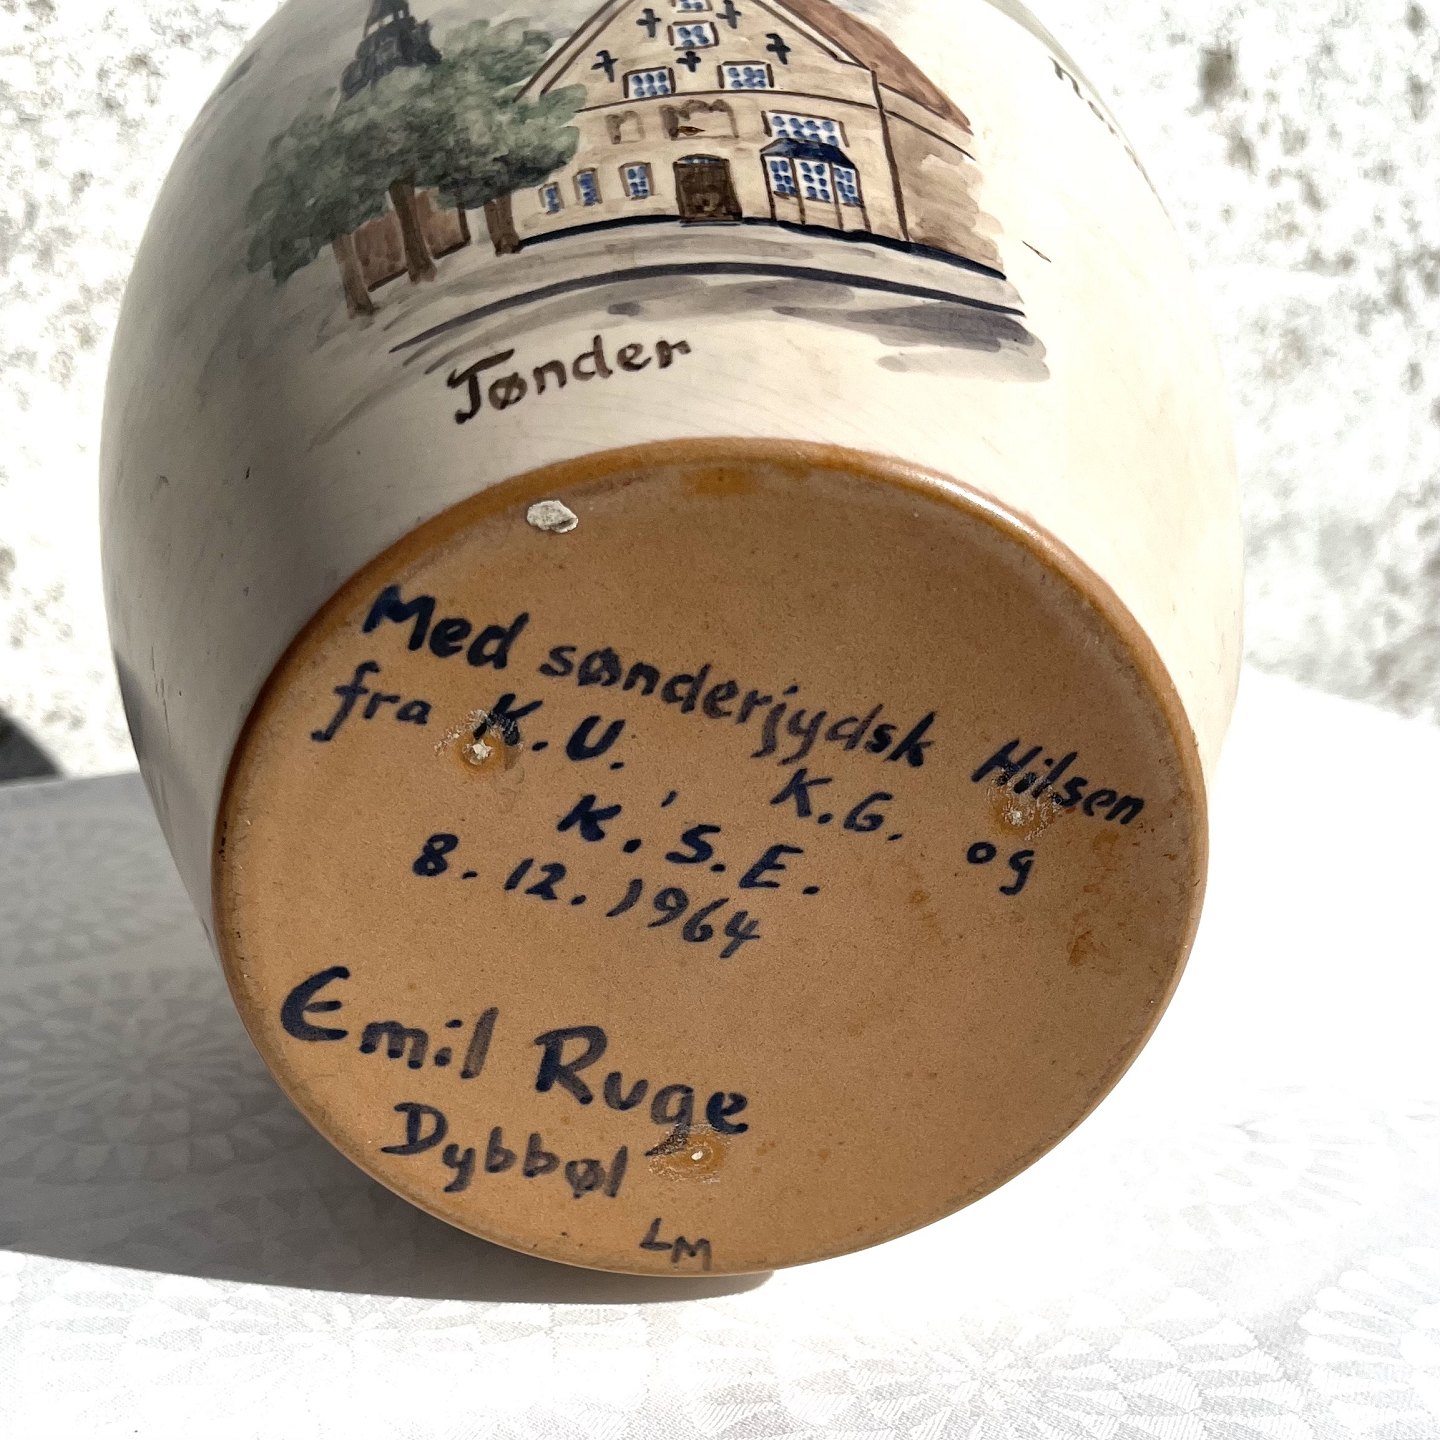 Tønder
Med sønderjydsk Hilsen
fra K.U., K.G. og
K.S.E.
8.12.1964
Emil Ruge
Dybbøl
LM